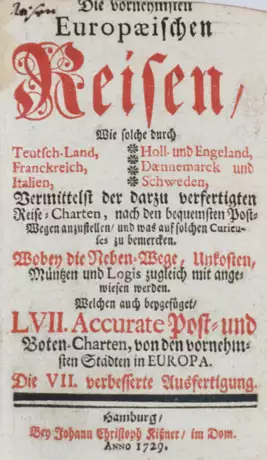 Reisen
Die vornehmsten
Europæischen
Reisen/
Wie solche durch
Teutsch-Land, ❉ Holl- und Engeland,
Franckreich, ❉ Dænnemarck und
Italien, ❉ Schweden,
Vermittelst der darzu verfertigten
Reise-Charten, nach den bequemsten Post-
Wegen anzustellen/ und was auf solchen Curieu-
ses zu bemercken.
Wobey die Neben-Wege, Unkosten,
Müntzen und Logis zugleich mit ange-
wiesen werden.
Welchen auch beygefüget/
LVII. Accurate Post- und
Boten-Charten, von den vornehm-
sten Städten in EUROPA.
Die VII. verbesserte Ausfertigung.
Hamburg/
Bey Johann Christoph Kißner/ im Dom.
ANNO 1729.